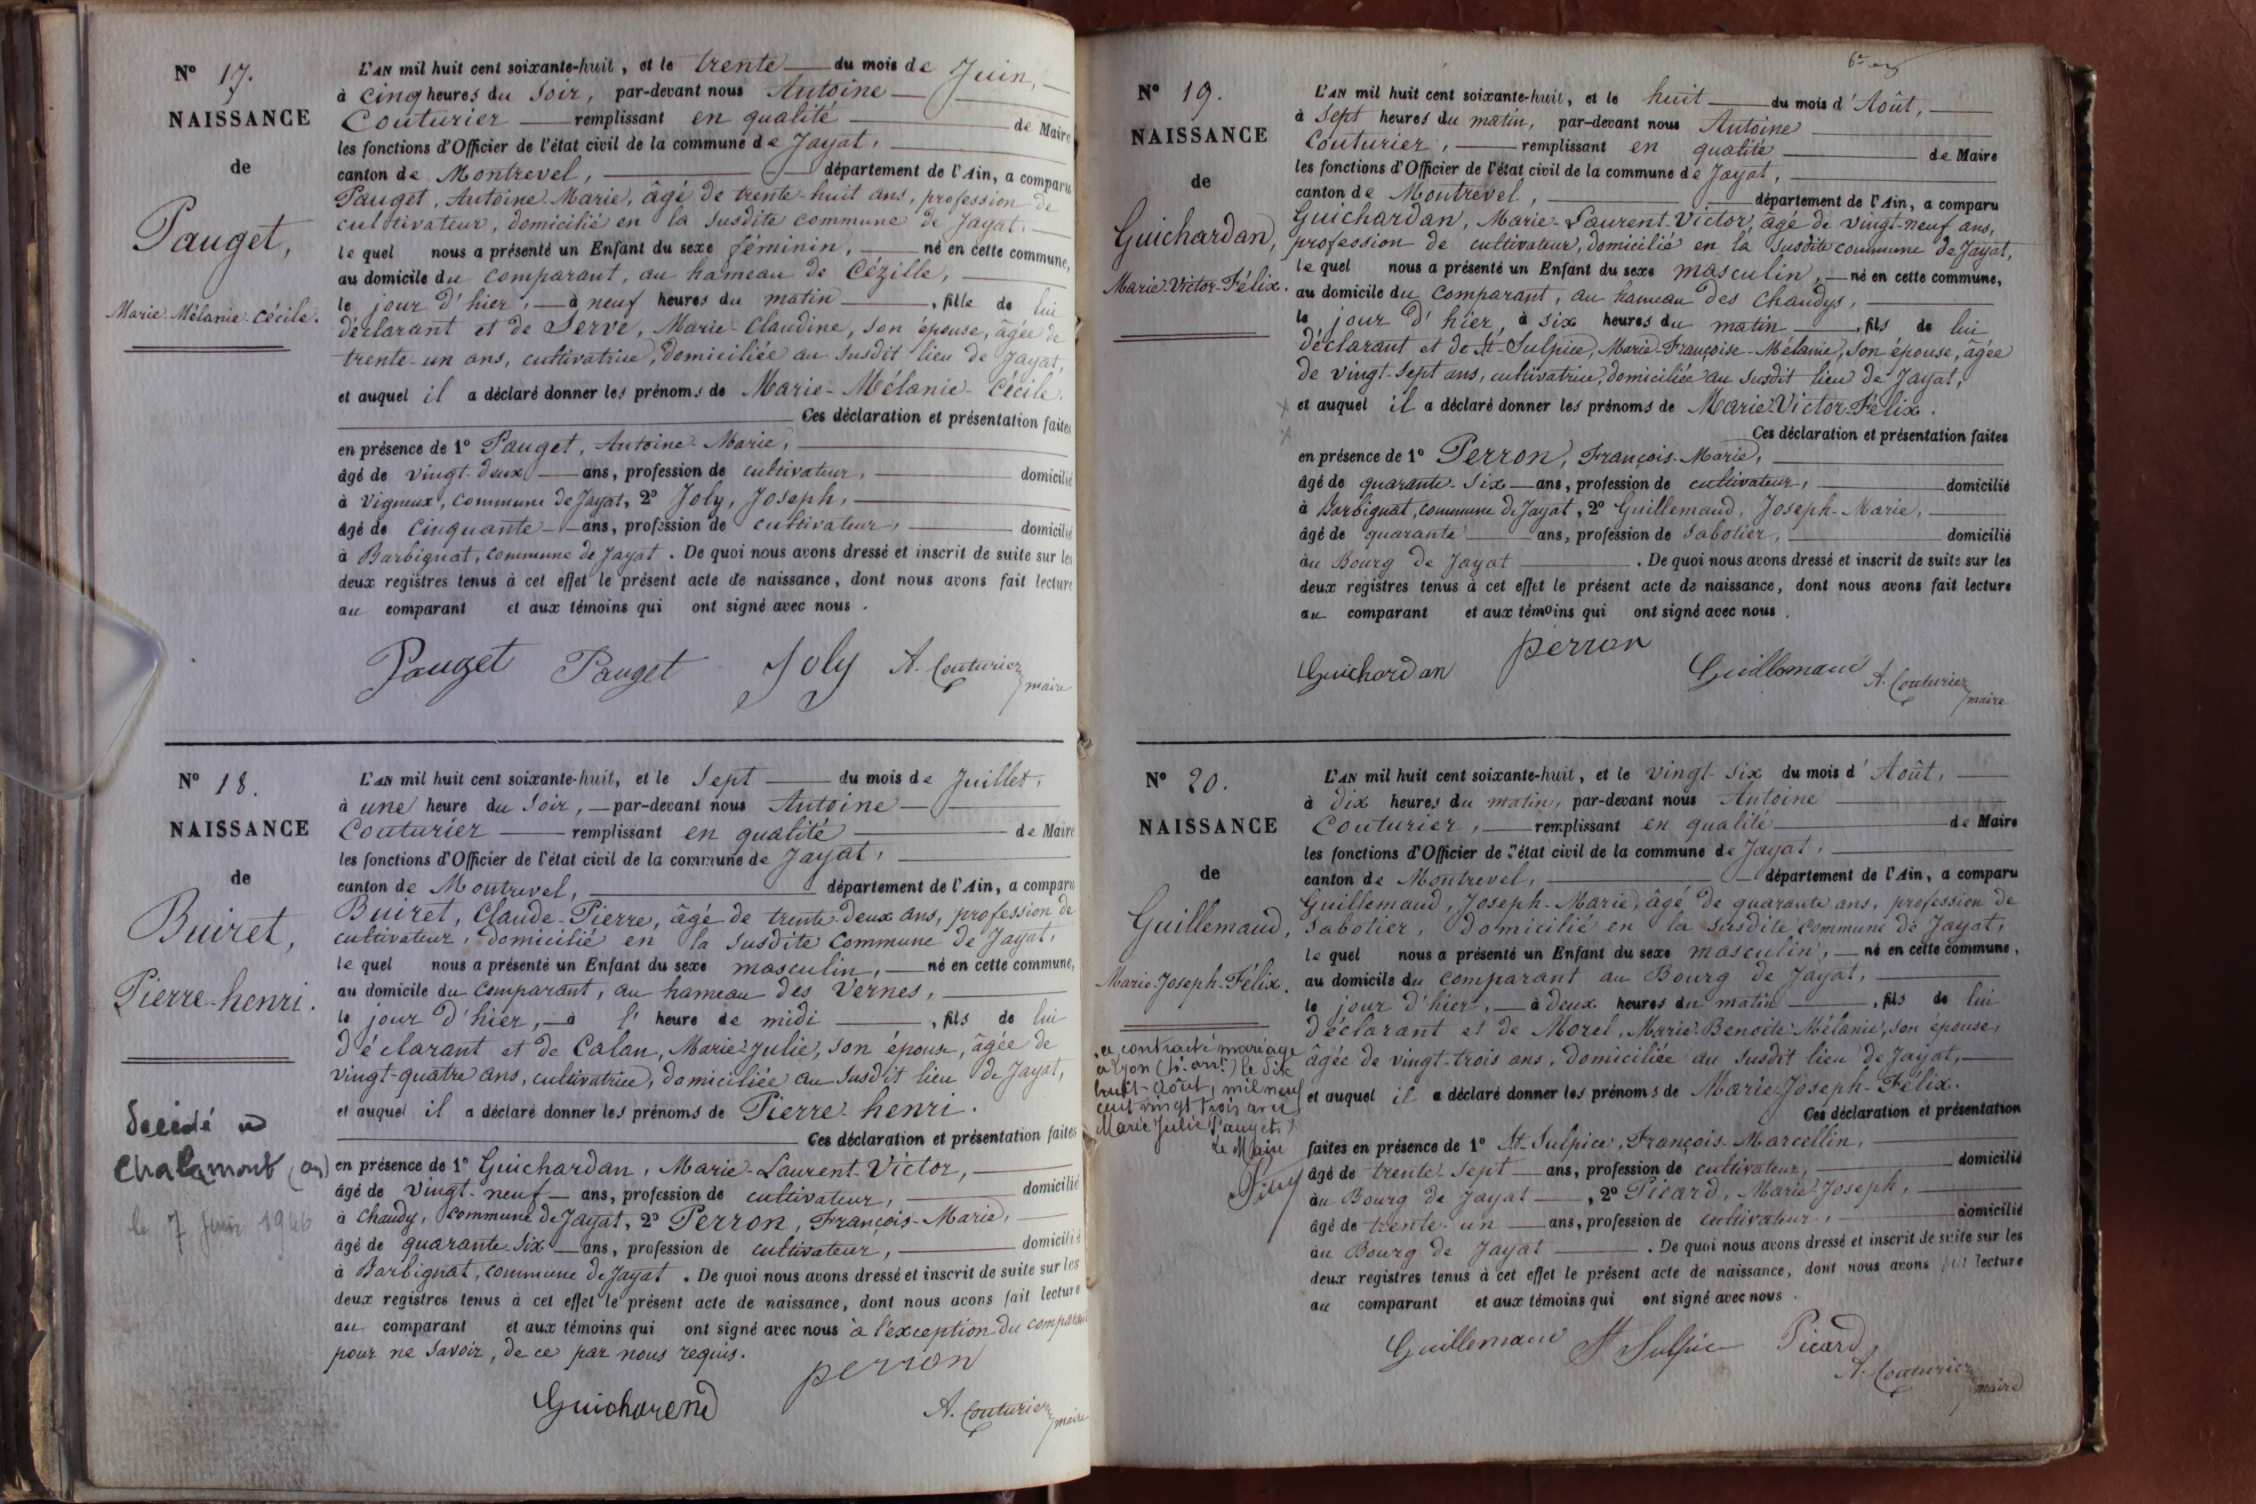 N° 17.
NAISSANCE
de
Pauget,
Marie-Mélanie-Cécile.
L'AN mil huit cent soixante-huit, et le trente du mois de Juin,
à cinq heures du soir, par-devant nous Antoine
Couturier remplissant en qualité de Maire
les fonctions d'Officier de l'état civil de la commune de Jayat,
canton de Montrevel, département de l'Ain, a comparu
Pauget, Antoine-Marie, âgé de trente-huit ans, profession de
cultivateur, domicilié en la susdite commune de Jayat,
le quel nous a présenté un Enfant du sexe féminin, né en cette commune,
au domicile du comparant, au hameau de Cézille,
le jour d'hier, à neuf heures du matin, fille de lui
déclarant et de Serve, Marie-Claudine, son épouse, âgée de
trente-un ans, cultivatrice, domiciliée au susdit lieu de Jayat,
et auquel il a déclaré donner les prénoms de Marie-Mélanie-Cécile.
Ces déclaration et présentation faites
en présence de 1° Pauget, Antoine-Marie,
âgé de vingt-deux ans, profession de cultivateur, domicilié
à Vigneux, commune de Jayat, 2° Joly, Joseph,
âgé de cinquante ans, profession de cultivateur, domicilié
à Barbignat, commune de Jayat. De quoi nous avons dressé et inscrit de suite sur les
deux registres tenus à cet effet le présent acte de naissance, dont nous avons fait lecture
au comparant et aux témoins qui ont signé avec nous.
Pauget Pauget Joly A. Couturier
maire
N° 18.
NAISSANCE
de
Buiret,
Pierre-henri.
Décédé à
Chalamont (Ain)
le 7 Juin 1946
L'AN mil huit cent soixante-huit, et le sept du mois de Juillet,
à une heure du soir, par-devant nous Antoine
Couturier remplissant en qualité de Maire
les fonctions d'Officier de l'état civil de la commune de Jayat,
canton de Montrevel, département de l'Ain, a comparu
Buiret, Claude-Pierre, âgé de trente-deux ans, profession de
cultivateur, domicilié en la susdite commune de Jayat,
le quel nous a présenté un Enfant du sexe masculin, né en cette commune,
au domicile du comparant, au hameau des Vernes,
le jour d'hier, à l'heure de midi, fils de lui
déclarant et de Calan, Marie-Julie, son épouse, âgée de
vingt-quatre ans, cultivatrice, domiciliée au susdit lieu de Jayat,
et auquel il a déclaré donner les prénoms de Pierre-henri.
Ces déclaration et présentation faites
en présence de 1° Guichardan, Marie-Laurent-Victor,
âgé de vingt-neuf ans, profession de cultivateur, domicilié
à Chaudy, commune de Jayat, 2° Perron, François-Marie,
âgé de quarante-six ans, profession de cultivateur, domicilié
à Barbignat, commune de Jayat. De quoi nous avons dressé et inscrit de suite sur les
deux registres tenus à cet effet le présent acte de naissance, dont nous avons fait lecture
au comparant et aux témoins qui ont signé avec nous à l'exception du comparant
pour ne savoir, de ce par nous requis.
perron
A. Couturier
maire
N° 19.
NAISSANCE
de
Guichardan,
Marie-Victor-Félix.
L'AN mil huit cent soixante-huit, et le huit du mois d'Août,
à sept heures du matin, par-devant nous Antoine
Couturier, remplissant en qualité de Maire
les fonctions d'Officier de l'état civil de la commune de Jayat,
canton de Montrevel, département de l'Ain, a comparu
Guichardan, Marie-Laurent-Victor, âgé de vingt-neuf ans,
profession de cultivateur, domicilié en la susdite commune de Jayat,
le quel nous a présenté un Enfant du sexe masculin, né en cette commune,
au domicile du comparant, au hameau des Chaudys,
le jour d'hier, à six heures du matin, fils de lui
déclarant et de St-Sulpice, Marie-Françoise-Mélanie, son épouse, âgée
de vingt-sept ans, cultivatrice, domiciliée au susdit lieu de Jayat,
et auquel il a déclaré donner les prénoms de Marie-Victor-Félix.
Ces déclaration et présentation faites
en présence de 1° Perron, François-Marie,
âgé de quarante-six ans, profession de cultivateur, domicilié
à Barbignat, commune de Jayat, 2° Guillemaud, Joseph-Marie,
âgé de quarante ans, profession de sabotier, domicilié
au Bourg de Jayat. De quoi nous avons dressé et inscrit de suite sur les
deux registres tenus à cet effet le présent acte de naissance, dont nous avons fait lecture
au comparant et aux témoins qui ont signé avec nous.
Guichardan perron Guillemaud A. Couturier
maire
N° 20.
NAISSANCE
de
Guillemaud,
Marie-Joseph-Félix.
a contracté mariage
à Lyon le dix
huit août, mil neuf
cent vingt trois avec
Marie Julie Pauget
Le Maire
L'AN mil huit cent soixante-huit, et le vingt-six du mois d'Août,
à dix heures du matin, par-devant nous Antoine
Couturier, remplissant en qualité de Maire
les fonctions d'Officier de l'état civil de la commune de Jayat,
canton de Montrevel, département de l'Ain, a comparu
Guillemaud, Joseph-Marie, âgé de quarante ans, profession de
sabotier, domicilié en la susdite commune de Jayat,
le quel nous a présenté un Enfant du sexe masculin, né en cette commune,
au domicile du comparant au Bourg de Jayat,
le jour d'hier, à deux heures du matin, fils de lui
déclarant et de Morel, Marie-Benoite-Mélanie, son épouse,
âgée de vingt-trois ans, domiciliée au susdit lieu de Jayat,
et auquel il a déclaré donner les prénoms de Marie-Joseph-Félix.
Ces déclaration et présentation
faites en présence de 1° St-Sulpice, François-Marcellin,
âgé de trente-sept ans, profession de cultivateur, domicilié
au Bourg de Jayat, 2° Picard, Marie-Joseph,
âgé de trente-un ans, profession de cultivateur, domicilié
au Bourg de Jayat. De quoi nous avons dressé et inscrit de suite sur les
deux registres tenus à cet effet le présent acte de naissance, dont nous avons fait lecture
au comparant et aux témoins qui ont signé avec nous.
Guillemaud St Sulpice Picard
A. Couturier
maire